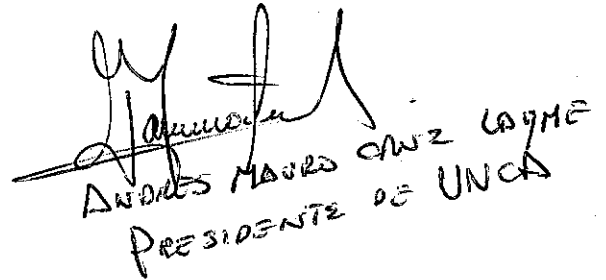 ANDRES MAURO CRUZ LAYME
PRESIDENTE DE UNCA